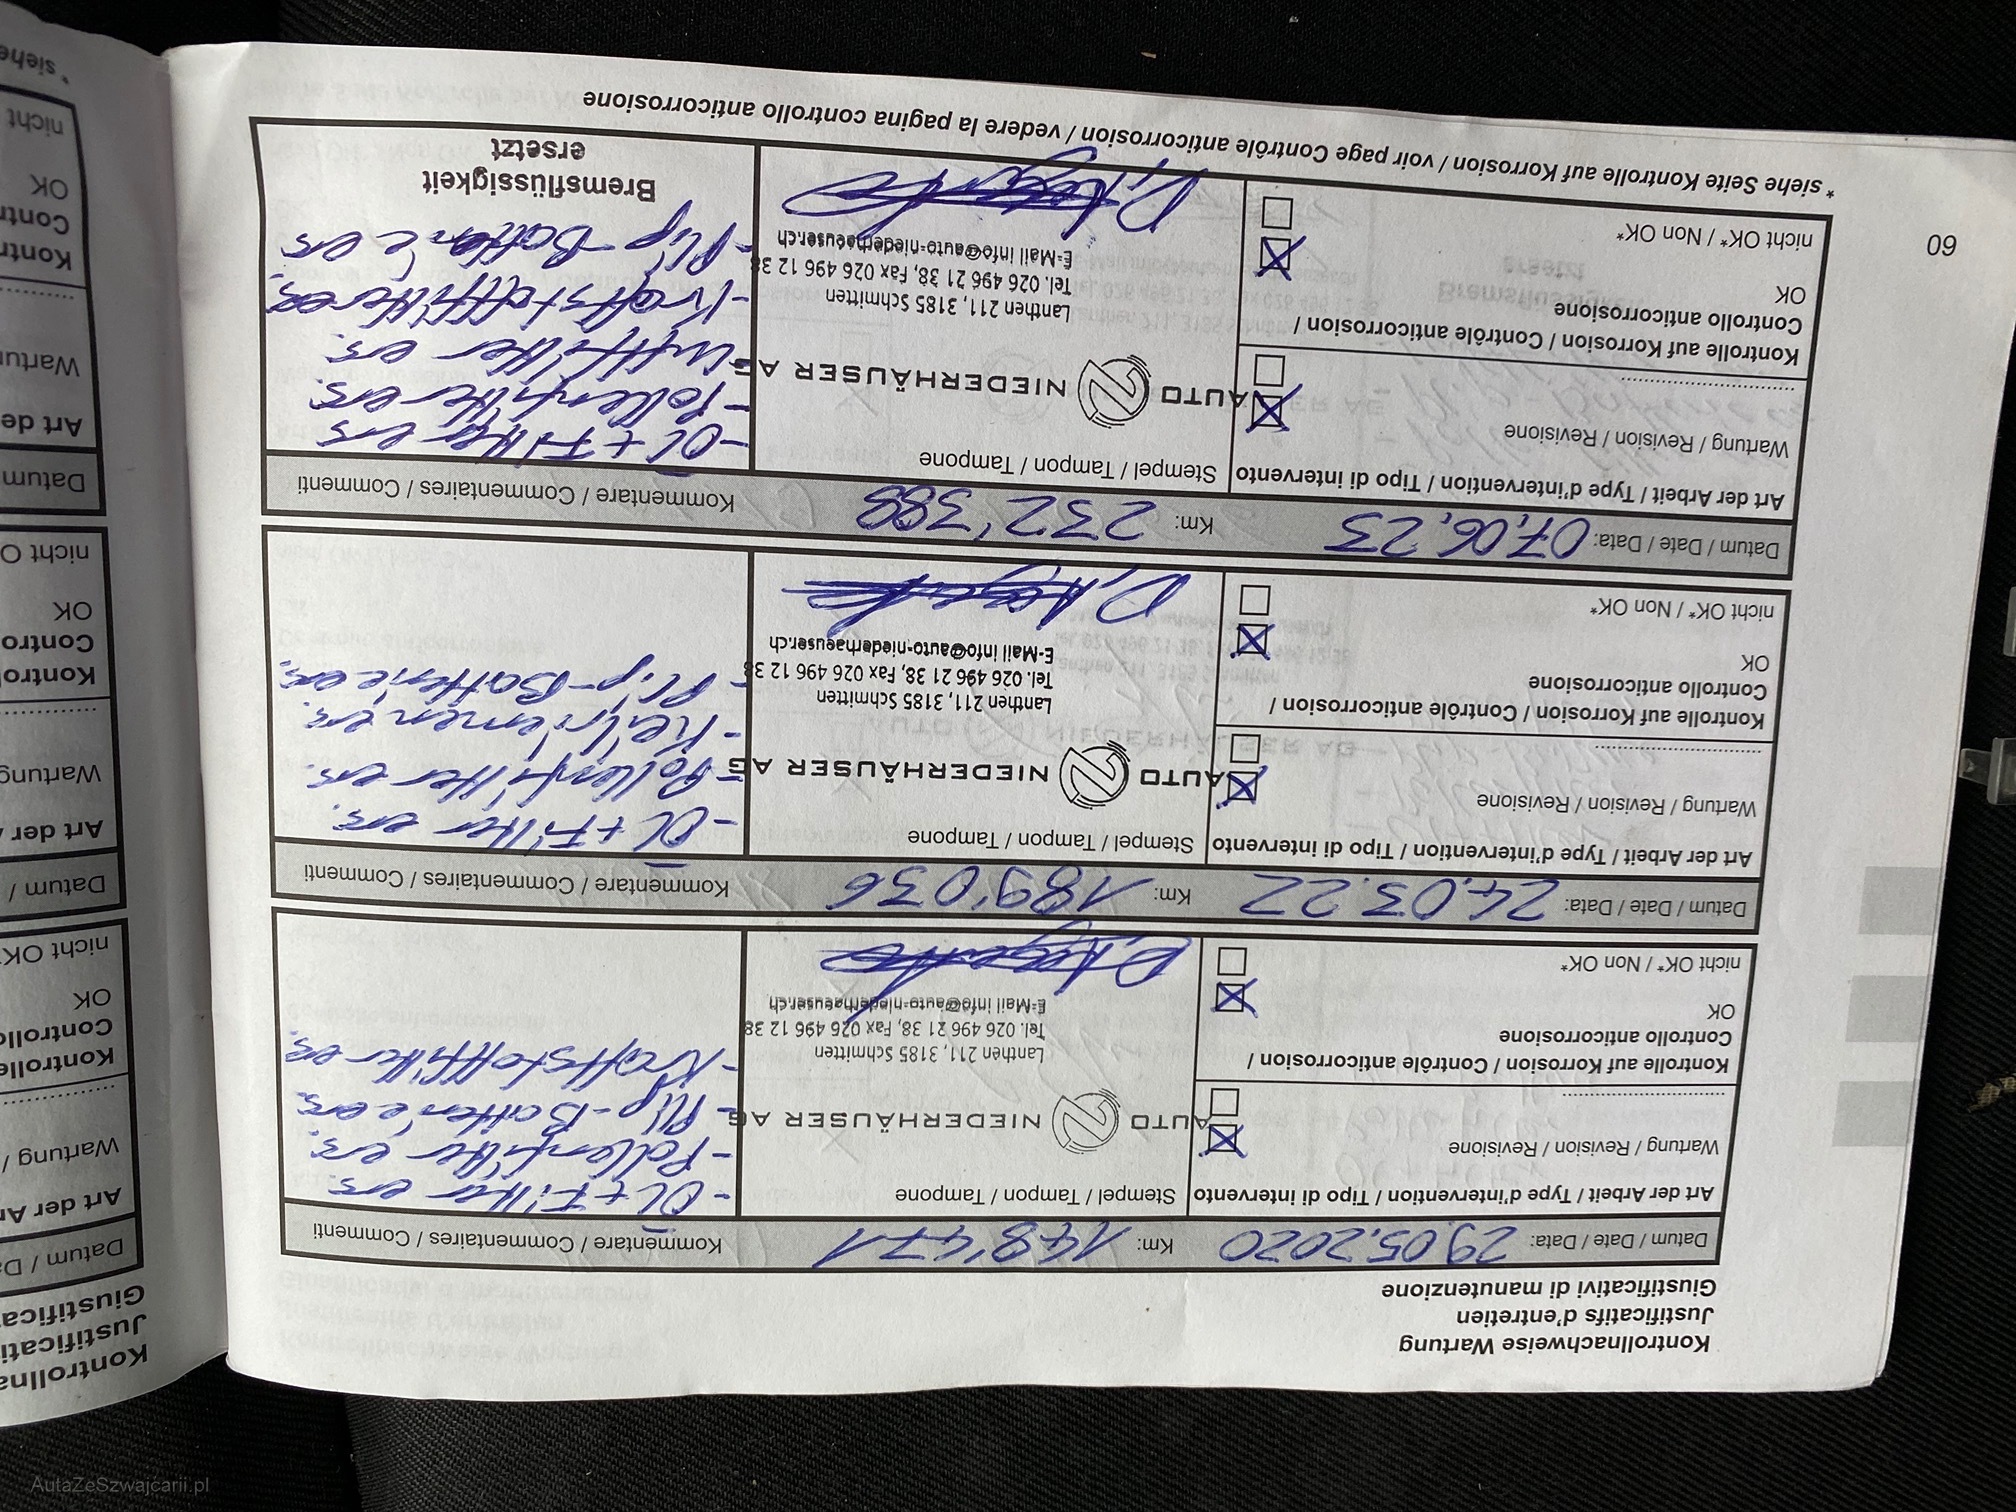 Kontrollnachweise Wartung
Justificatifs d'entretien
Giustificativi di manutenzione
Datum / Date / Data: 29.05.2020 Km: 148'471 Kommentare / Commentaires / Commenti
Art der Arbeit / Type d'intervention / Tipo di intervento
Wartung / Revision / Revisione
....................................
Kontrolle auf Korrosion / Contrôle anticorrosion /
Controllo anticorrosione
OK
nicht OK* / Non OK*
Stempel / Tampon / Tampone
AUTO NIEDERHÄUSER AG
Lanthen 211, 3185 Schmitten
Tel. 026 496 21 38, Fax 026 496 12 38
E-Mail info@auto-niederhaeuser.ch
- Öl + Filter ers.
- Pollenfilter ers.
- Plip-Batterie ers.
- Kraftstofffilter ers
Datum / Date / Data: 24.03.22 Km: 189'036 Kommentare / Commentaires / Commenti
Art der Arbeit / Type d'intervention / Tipo di intervento
Wartung / Revision / Revisione
....................................
Kontrolle auf Korrosion / Contrôle anticorrosion /
Controllo anticorrosione
OK
nicht OK* / Non OK*
Stempel / Tampon / Tampone
AUTO NIEDERHÄUSER AG
Lanthen 211, 3185 Schmitten
Tel. 026 496 21 38, Fax 026 496 12 38
E-Mail info@auto-niederhaeuser.ch
- Öl + Filter ers.
- Pollenfilter ers.
- Keilriemen ers.
- Plip-Batterie ers.
Datum / Date / Data: 07.06.23 Km: 232'388 Kommentare / Commentaires / Commenti
Art der Arbeit / Type d'intervention / Tipo di intervento
Wartung / Revision / Revisione
....................................
Kontrolle auf Korrosion / Contrôle anticorrosion /
Controllo anticorrosione
OK
nicht OK* / Non OK*
Stempel / Tampon / Tampone
AUTO NIEDERHÄUSER AG
Lanthen 211, 3185 Schmitten
Tel. 026 496 21 38, Fax 026 496 12 38
E-Mail info@auto-niederhaeuser.ch
- Öl + Filter ers
- Pollenfilter ers.
- Luftfilter ers.
- Kraftstofffilter ers.
- Plip-Batterie ers
Bremsflüssigkeit
ersetzt
* siehe Seite Kontrolle auf Korrosion / voir page Contrôle anticorrosion / vedere la pagina controllo anticorrosione
60
Datum /
Art der
Wartung
OK
nicht OK
* siehe
AutaZeSzwajcarii.pl